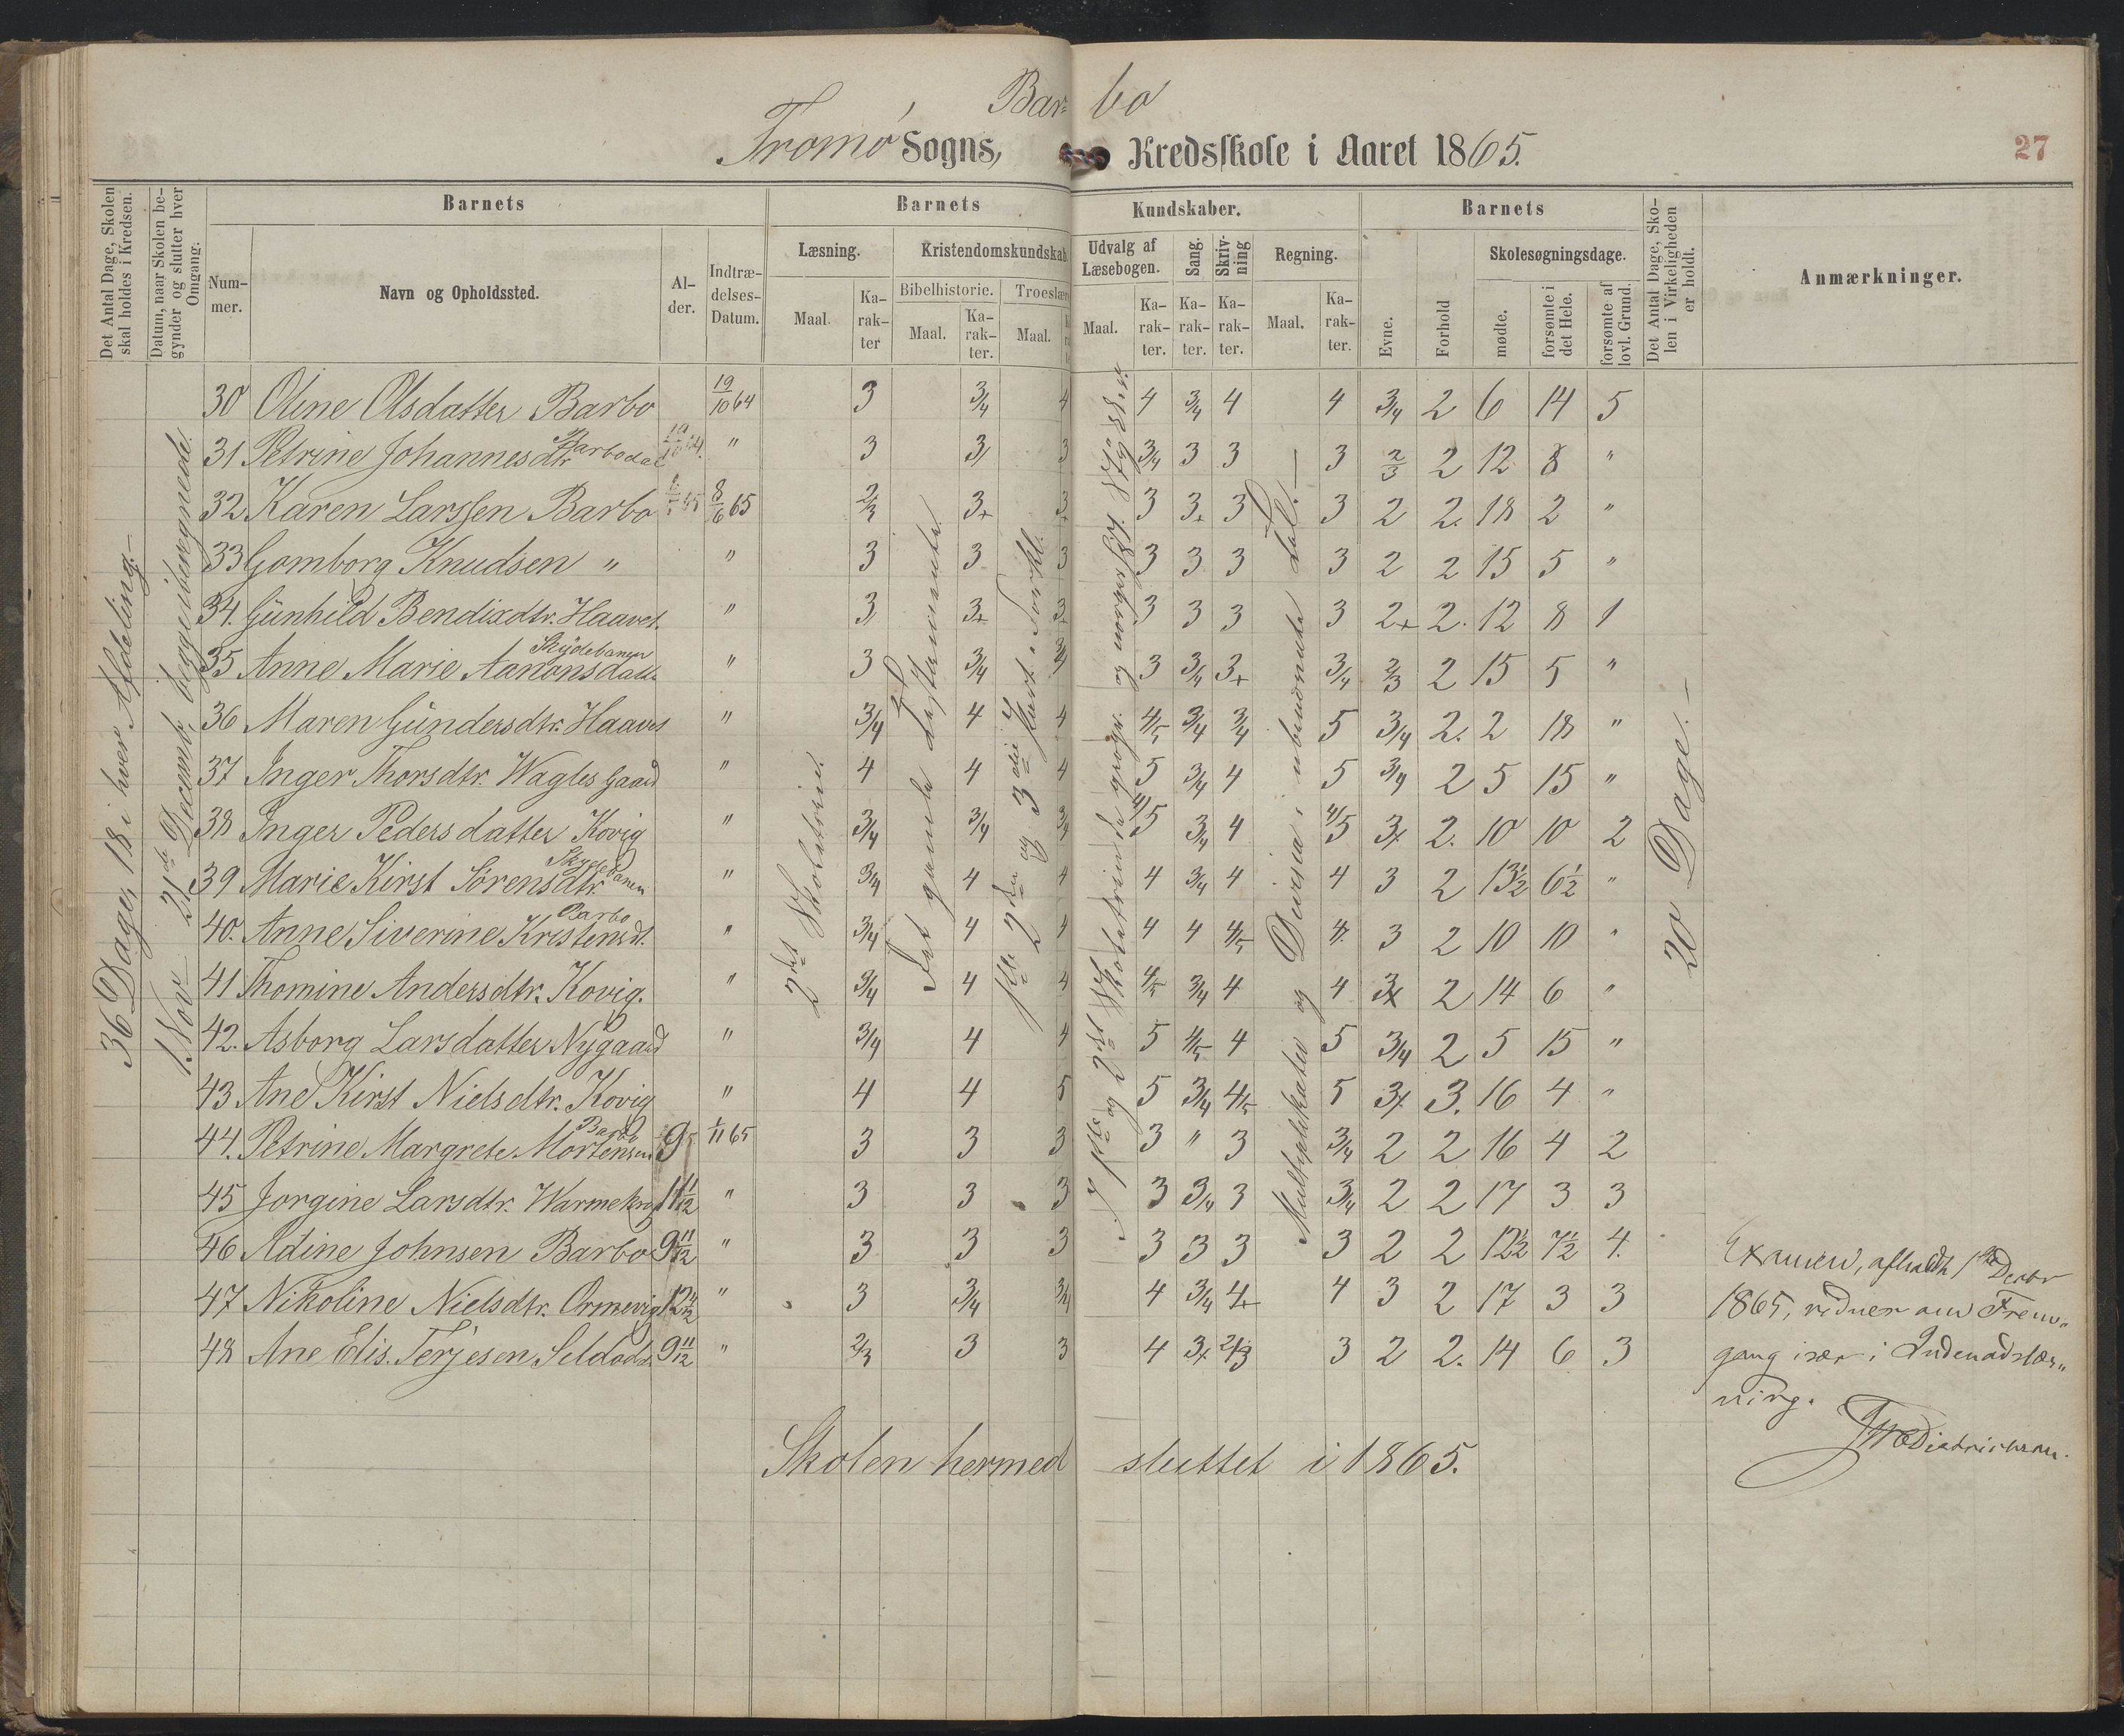 Bar- bo
Tromø Sogns, Kredsskole i Aaret 1865.
27
Det Antal Dage, Skolen skal holdes i Kredsen.
Datum, naar Skolen begynder og slutter hver Omgang.
Barnets
Barnets
Kundskaber.
Barnets
Det Antal Dage, Skolen i Virkeligheden er holdt.
Anmærkninger.
Nummer.
Navn og Opholdssted.
Alder.
Indtrædelses-Datum.
Læsning.
Kristendomskundskab
Udvalg af Læsebogen.
Sang.
Skrivning
Regning.
Evne.
Forhold
Skolesøgningsdage.
Bibelhistorie.
Troeslære
Maal.
Karakter
Maal.
Karakter.
Maal.
Maal.
Karakter.
Karakter.
Karakter.
Maal.
Karakter.
mødte.
forsømte i det Hele.
forsømte af lovl. Grund.
36 Dage, 18 i hver Afdeling.–
1. Nov – 21de Decemb, begge iberegnede.
2det Skoletrin.
Det gamle Testamente
1ste 2den og 3die Part. Forkl.
1ste og 2det Skoletrin
Multiplikation og Division i ubenævnte Tal. –
20 Dage. –
30 Oline Olsdatter Barbo 19/10 64 3 3/4 4 4 3/4 4 4 3/4 2 6 14 5
31 Petrine Johannesdtr Barbodal " 3 3 3 3/4 3 3 3 2/3 2 12 8 "
32 Karen Larssen Barbo 8/6 65 2/3 3+ 3+ 3 3+ 3 3 2 2. 18 2 "
33 Gomborg Knudsen " " 3 3 3 3 3 3 3 2 2 15 5 "
34. Günhild Bendixdtr. Haavet. " 3 3+ 3+ 3 3 3 3 2+ 2. 12 8 1
35 Anne Marie Aanonsdatt. Skydebanen " 3 3/4 3/4 3 3/4 3+ 3/4 2/3 2 15 5 "
36 Maren Gündersdtr. Haavet " 3/4 4 4 4/5 3/4 3/4 5 3/4 2. 2 18 "
37 Inger Thorsdtr. Wagles Gaard " 4 4 4 5 3/4 4 5 3/4 2 5 15 "
38 Inger Pedersdatter Kovig " 3/4 3/4 3/4 4/5 3/4 4 4/5 3+ 2. 10 10 2
39 Marie Kirst Sørensdtr Skydebanen " 3/4 4 4 4 3/4 4 4 3 2 13½ 6½ "
40. Anne Siverine Kristensd. Barbo " 3/4 4 4 4 4 4/5 4. 3 2 10 10 "
41 Thomine Andersdtr. Kovig. " 3/4 4 4 4/5 3/4 4 4 3+ 2 14 6 "
42. Asborg Larsdatter Nygaard " 3/4 4 4 5 4/5 4 5 3/4 2 5 15 "
43 Ane Kirst Nielsdtr. Kovig " 4 4 5 5 3/4 4/5 5 3+ 3. 16 4 "
44. Petrine Margrete Mortensen Barbo 9 1/11 65 3 3 3 3 " 3 3/4 2 2 16 4 2
45 Jorgine Larsdtr. Warmekrog 11 11/12 " 3 3 3 3 3/4 3 3/4 2 2 17 3 3
46 Adine Johnsen Barbo 9 11/12 " 3 3 3 3 3 3 3 2 2 12½ 7½ 4.
47 Nikoline Nielsdtr. Ormevig 12 " 3 3/4 3/4 4 3/4 4+ 4 3 2 17 3 3
48 Ane Elis. Terjesen 9 11/12 " 2/3 3 3 4 3+ 2/3 3 2 2. 14 6 3
Skolen hermed sluttet i 1865.
Examen, afholdt 1ste Decbr
1865, vidner om Frem-
gang især i Indenadslæs-
ning.